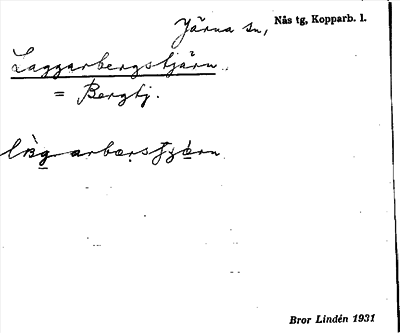 Järna sn, Nås tg, Kopparb. l.
Laggarbergstjärn.
= Bergtj.
Bror Lindén 1931